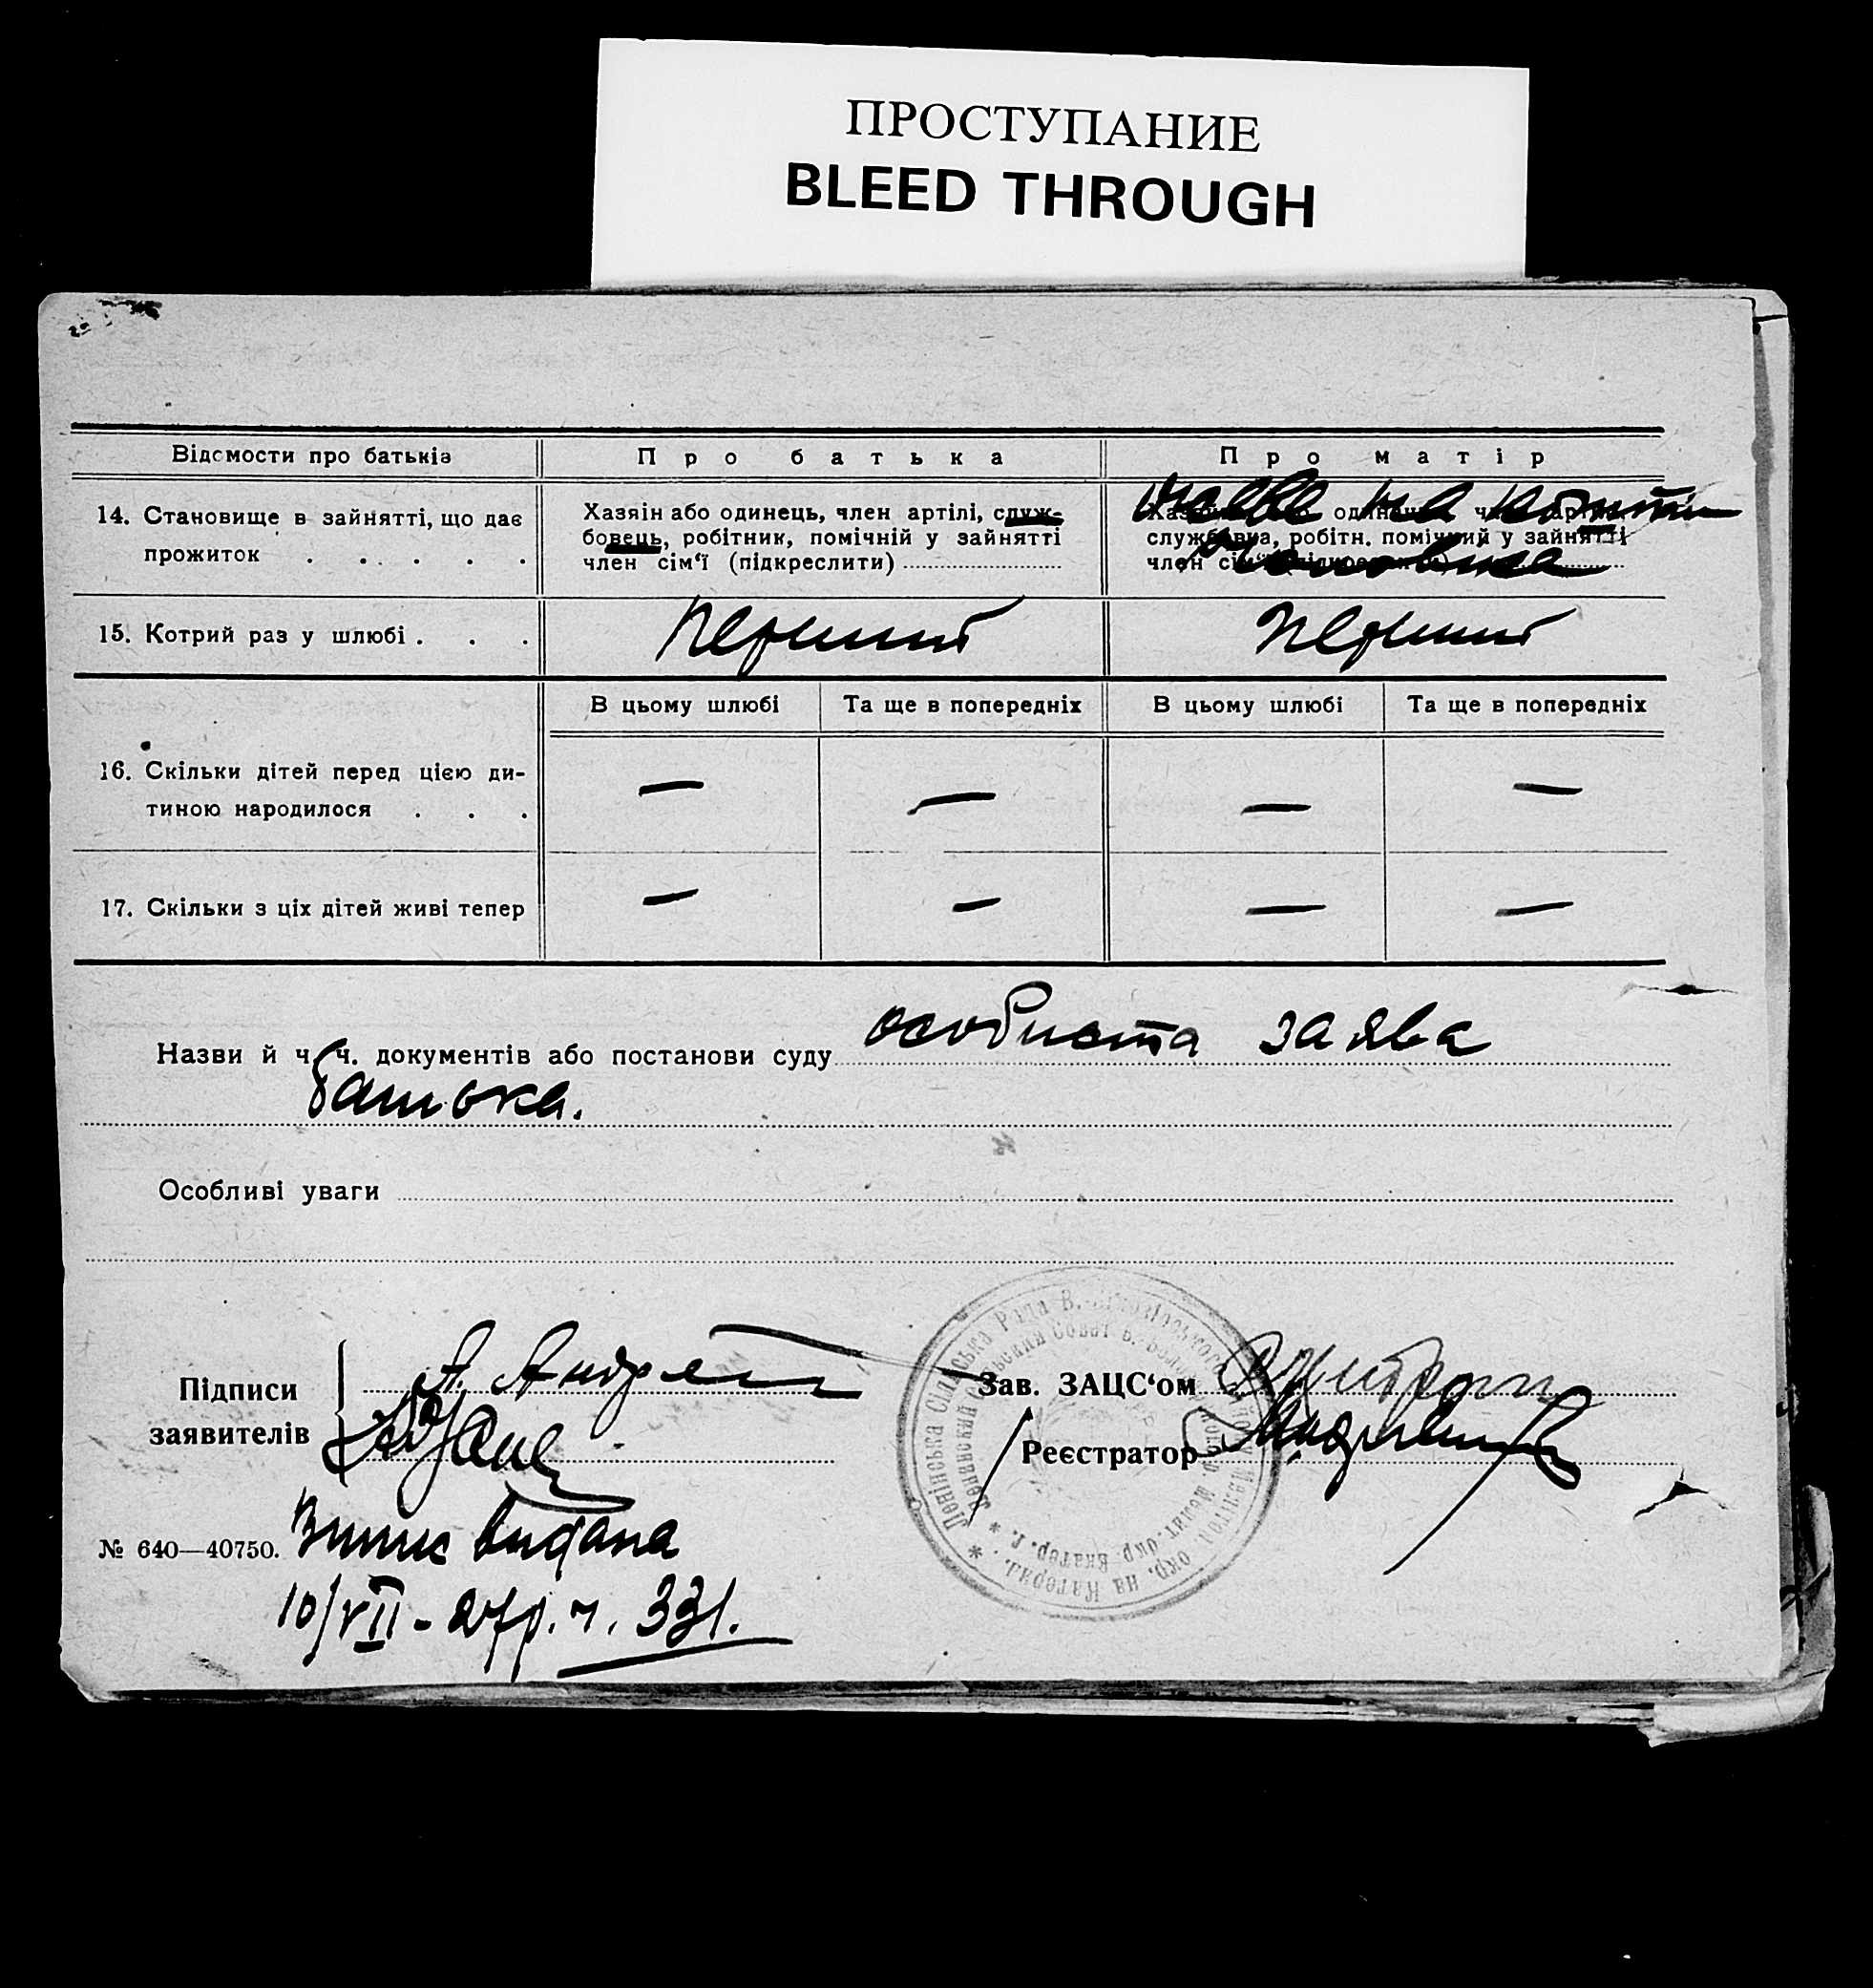 ПРОСТУПАНИЕ
BLEED THROUGH
Відомости про батьків
Про батька
Про матір
14. Становище в зайнятті, що дає
прожиток . . . . .
Хазяін або одинець, член артілі, служ-
бовець, робітник, помічній у зайнятті
член сім‘ї (підкреслити)
живе на кошти
чоловіка
службовка, робітн. помічний у зайнятті
15. Котрий раз у шлюбі . . .
перший
перший
В цьому шлюбі
Та ще в попередніх
В цьому шлюбі
Та ще в попередніх
16. Скільки дітей перед цією ди-
тиною народилося . . .
— — — —
17. Скільки з ціх дітей живі тепер
— — — —
Назви й ч. ч. документів або постанови суду особиста заява
батька.
Особливі уваги
Підписи
заявителів
А.
Зав. ЗАЦС‘ом
Реєстратор
Ленінська Сільська Рада В.
№ 640—40750.
Витис видана
10/VII - 27р. ч. 331.